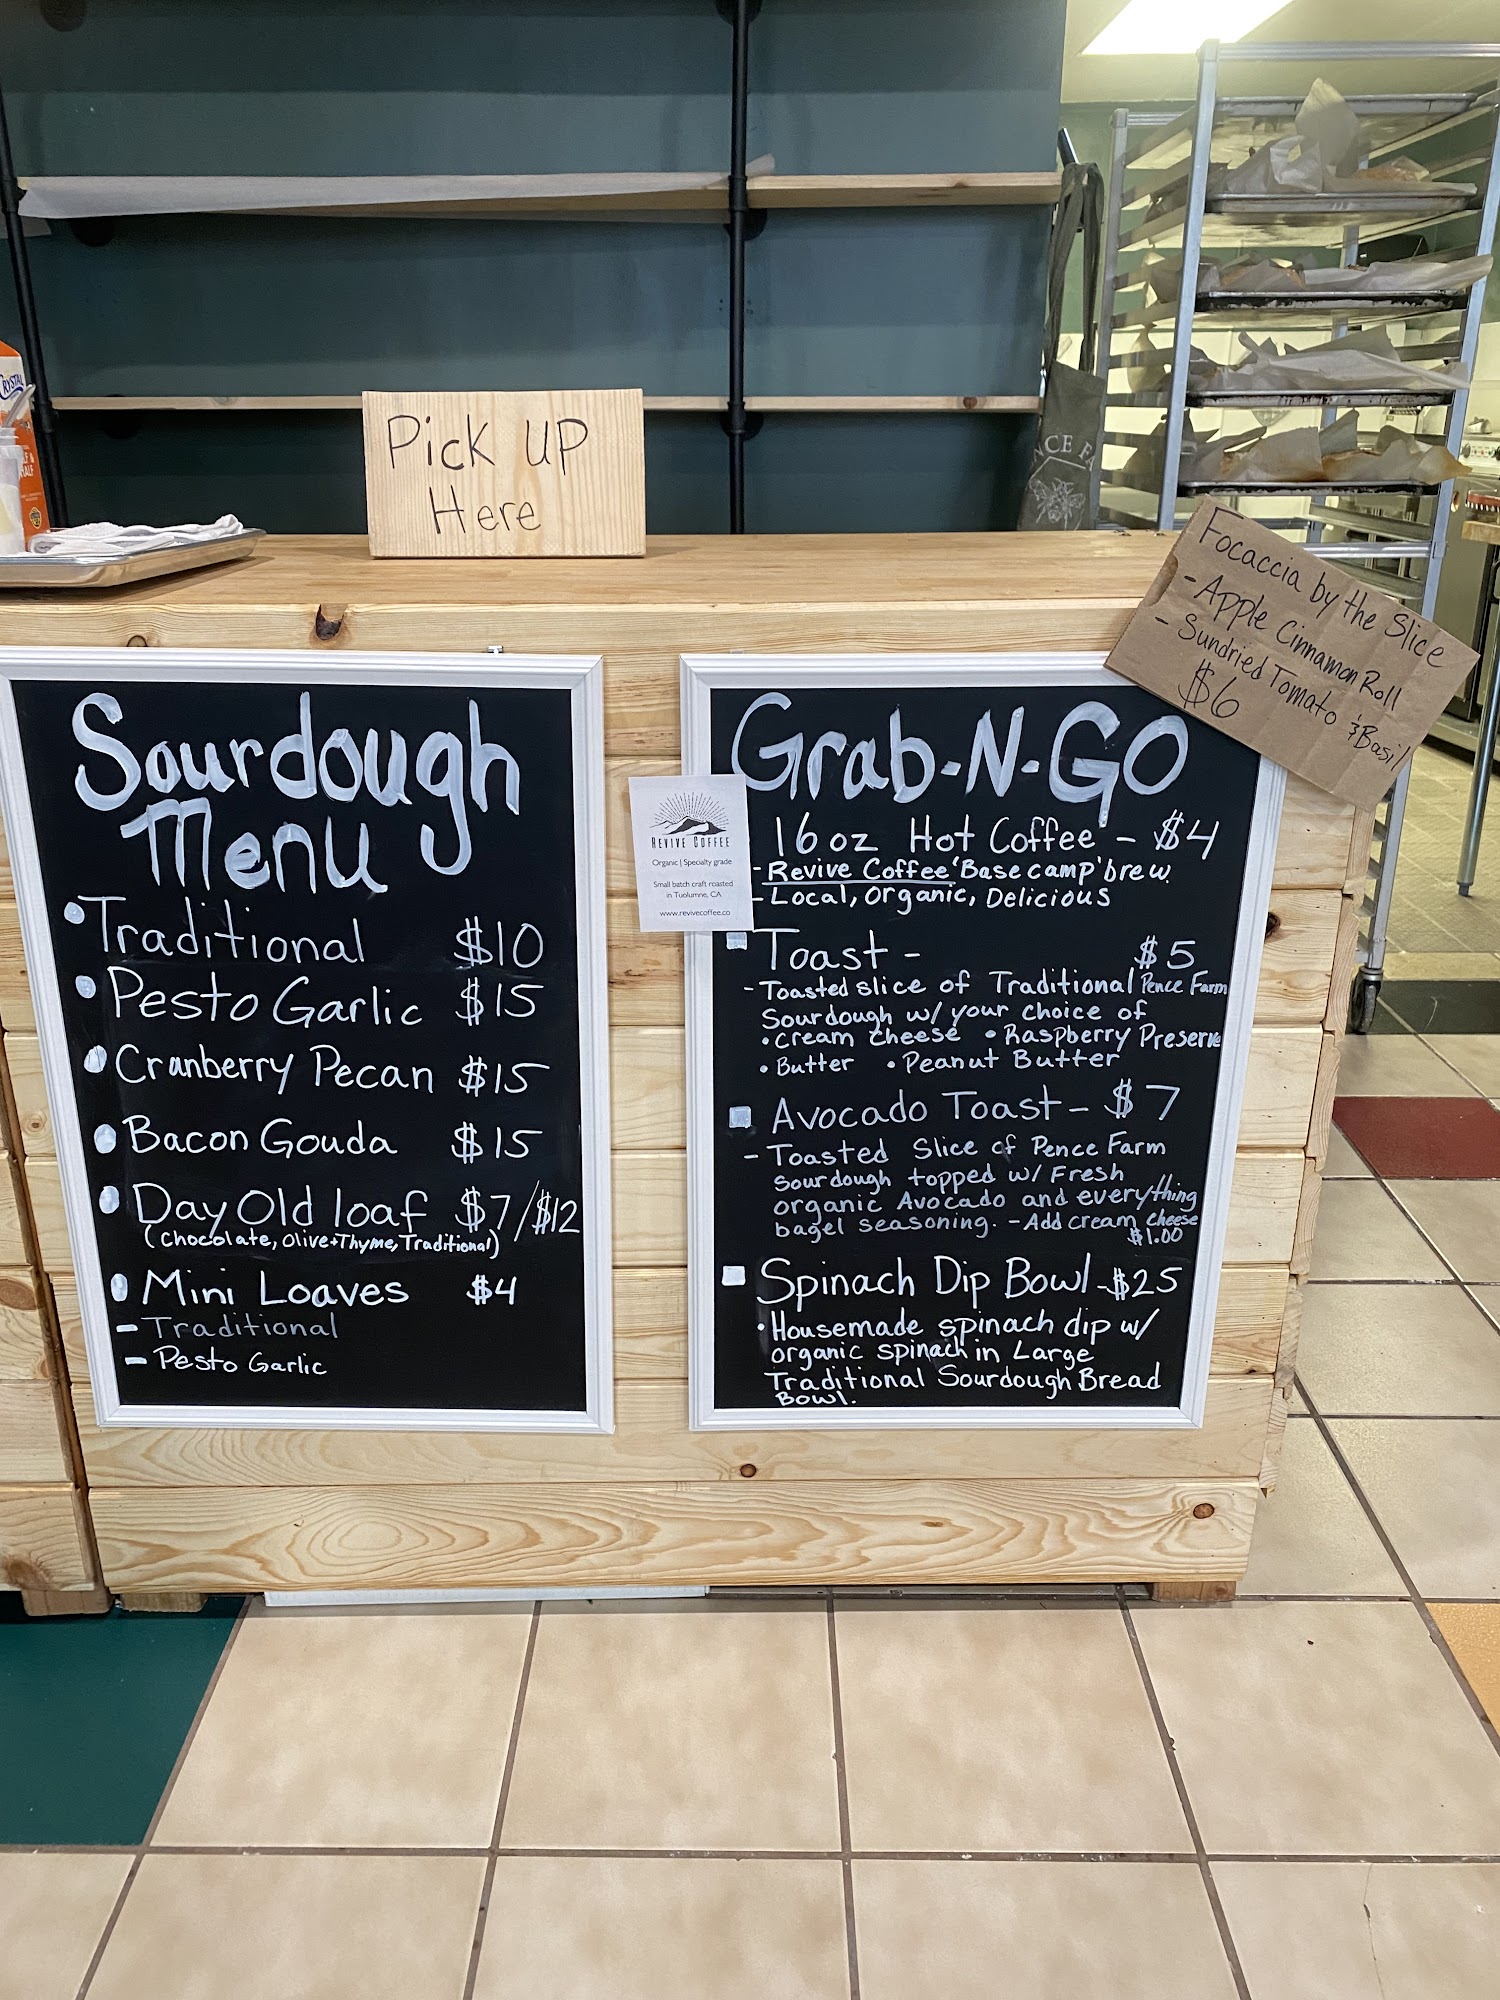 CRYSTAL
Pick UP
Here
NCE FA
Focaccia by the Slice
- Apple Cinnamon Roll
- Sundried Tomato & Basil
$6
Sourdough
Menu
Traditional $10
Pesto Garlic $15
Cranberry Pecan $15
Bacon Gouda $15
Day Old loaf $7/$12
(Chocolate, Olive+Thyme, Traditional)
Mini Loaves $4
- Traditional
- Pesto Garlic
REVIVE COFFEE
Organic | Specialty grade
Small batch craft roasted
in Tuolumne, CA
www.revivecoffee.co
Grab-N-GO
16 oz Hot Coffee - $4
- Revive Coffee 'Base camp' brew.
- Local, Organic, Delicious
Toast - $5
- Toasted slice of Traditional Pence Farm
Sourdough w/ your choice of
• cream cheese • Raspberry Preserve
• Butter • Peanut Butter
Avocado Toast - $7
- Toasted Slice of Pence Farm
Sourdough topped w/ Fresh
organic Avocado and everything
bagel seasoning. - Add cream cheese
$1.00
Spinach Dip Bowl - $25
• Housemade spinach dip w/
organic spinach in Large
Traditional Sourdough Bread
Bowl.